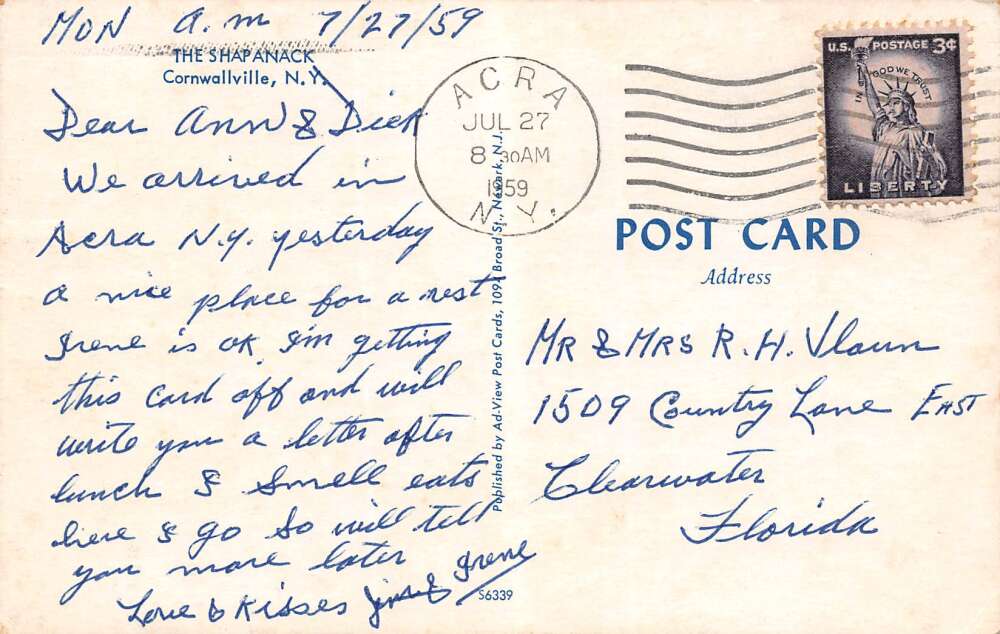 MON a.m 7/27/59
THE SHAPANACK
Cornwallville, N.Y.
Dear Ann & Dick
We arrived in
Acra N.Y. yesterday
a nice place for a rest
Irene is OK I'm getting
this card off and will
write you a letter after
lunch & I smell eats
here & go So will tell
you more later
Love & Kisses & Irene
S6339
Published by Ad-View Post Cards, 1091 Broad St., Newark, N.J.
ACRA
JUL 27
8 30AM
1959
N.Y.
U.S. POSTAGE 3¢
IN GOD WE TRUST
LIBERTY
POST CARD
Address
MR & MRS R. H.
1509 Country Lane EAST
Clearwater
Florida